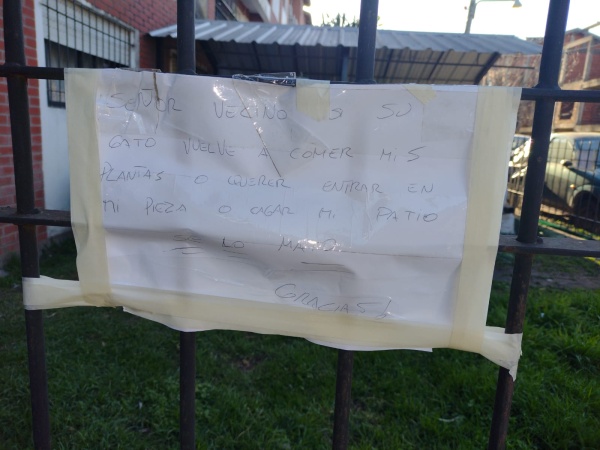 SEÑOR VECINO SI SU
GATO VUELVE A COMER MIS
PLANTAS O QUERER ENTRAR EN
MI PIEZA O CAGAR MI PATIO
SE LO MATO
GRACIAS!